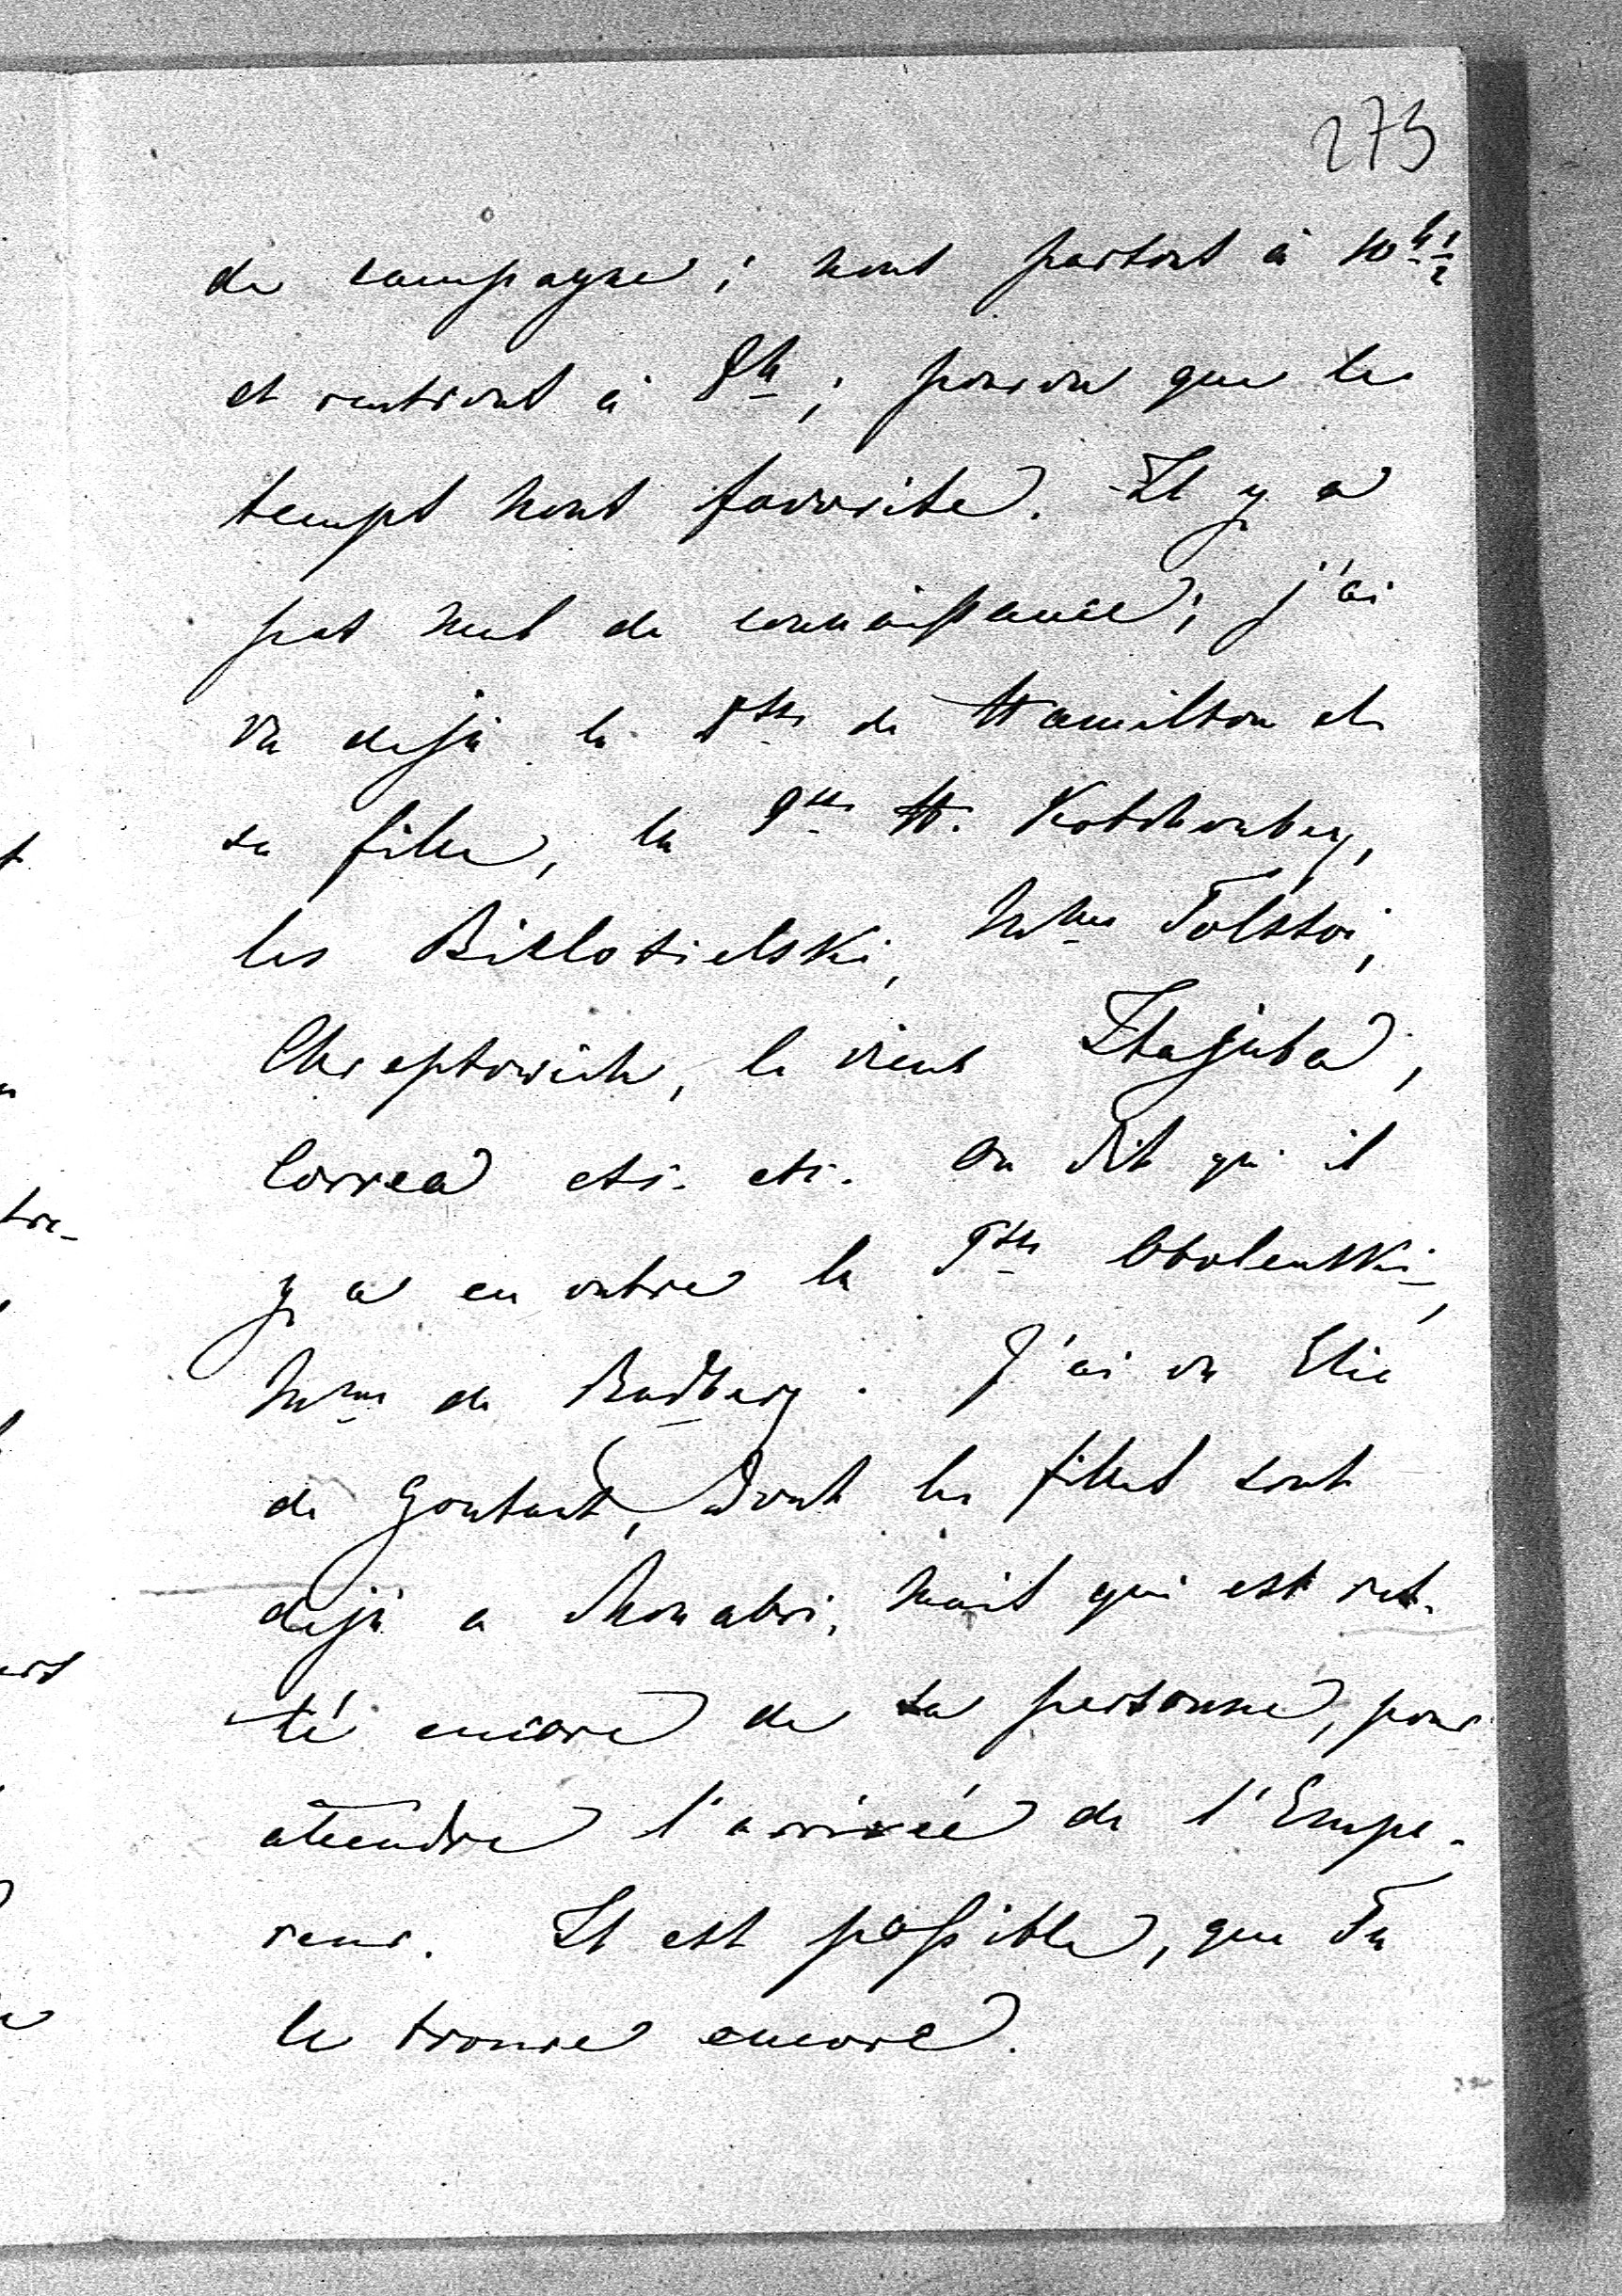 275
de campagne; nous partons à 10 h ½
et rentrons à 8 h; pourvu que le
temps nous favorise. Il y a
pas mal de connaissance; j'ai
vu dejà la Dsse de Hamilton et
sa fille, la Psse H. Kotschoubey,
les Biélosielski, Mme Tolstoi,
Chreptowich, le vieux Itajuba,
Correa etc. etc. On dit qu'il
y a en outre la Psse Obolenski,
Mme de Budberg. J'ai vu Elie
de Gontaut, dont les filles sont
dejà a Monabri, mais qui est res-
té encore de sa personne, pour
attendre l'arrivée de l'Empe-
reur. Il est possible, que Tu
le trouve encore.